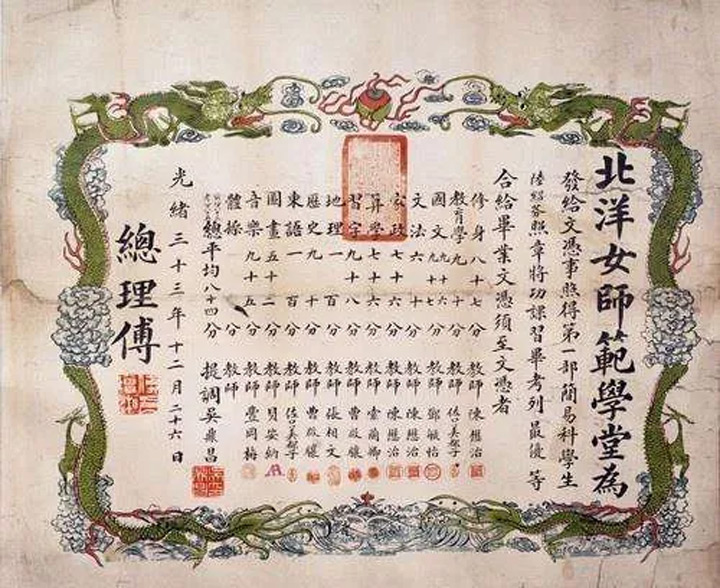 北洋女師範學堂為
發給文憑事照得第一部簡易科學生
陸紹芬照章將功課習畢考列最優等
合給畢業文憑須至文憑者
修身八十七分 教師 陳懋治
教育學九十分 教師
國文九十六分 教師 鄧毓怡
文法六十分 教師 陳懋治
家政七十六分 教師 陳懋治
算學七十六分 教師
習字九十八分 教師
地理一百分 教師 張相文
歷史九十分 教師
東語一百分 教師
圖畫五十二分 教師 貝安納
音樂九十五分 教師 豊岡梅
體操 分 教師
總平均八十四分 提調吳鼎昌
光緒三十三年十二月二十六日
總理傅